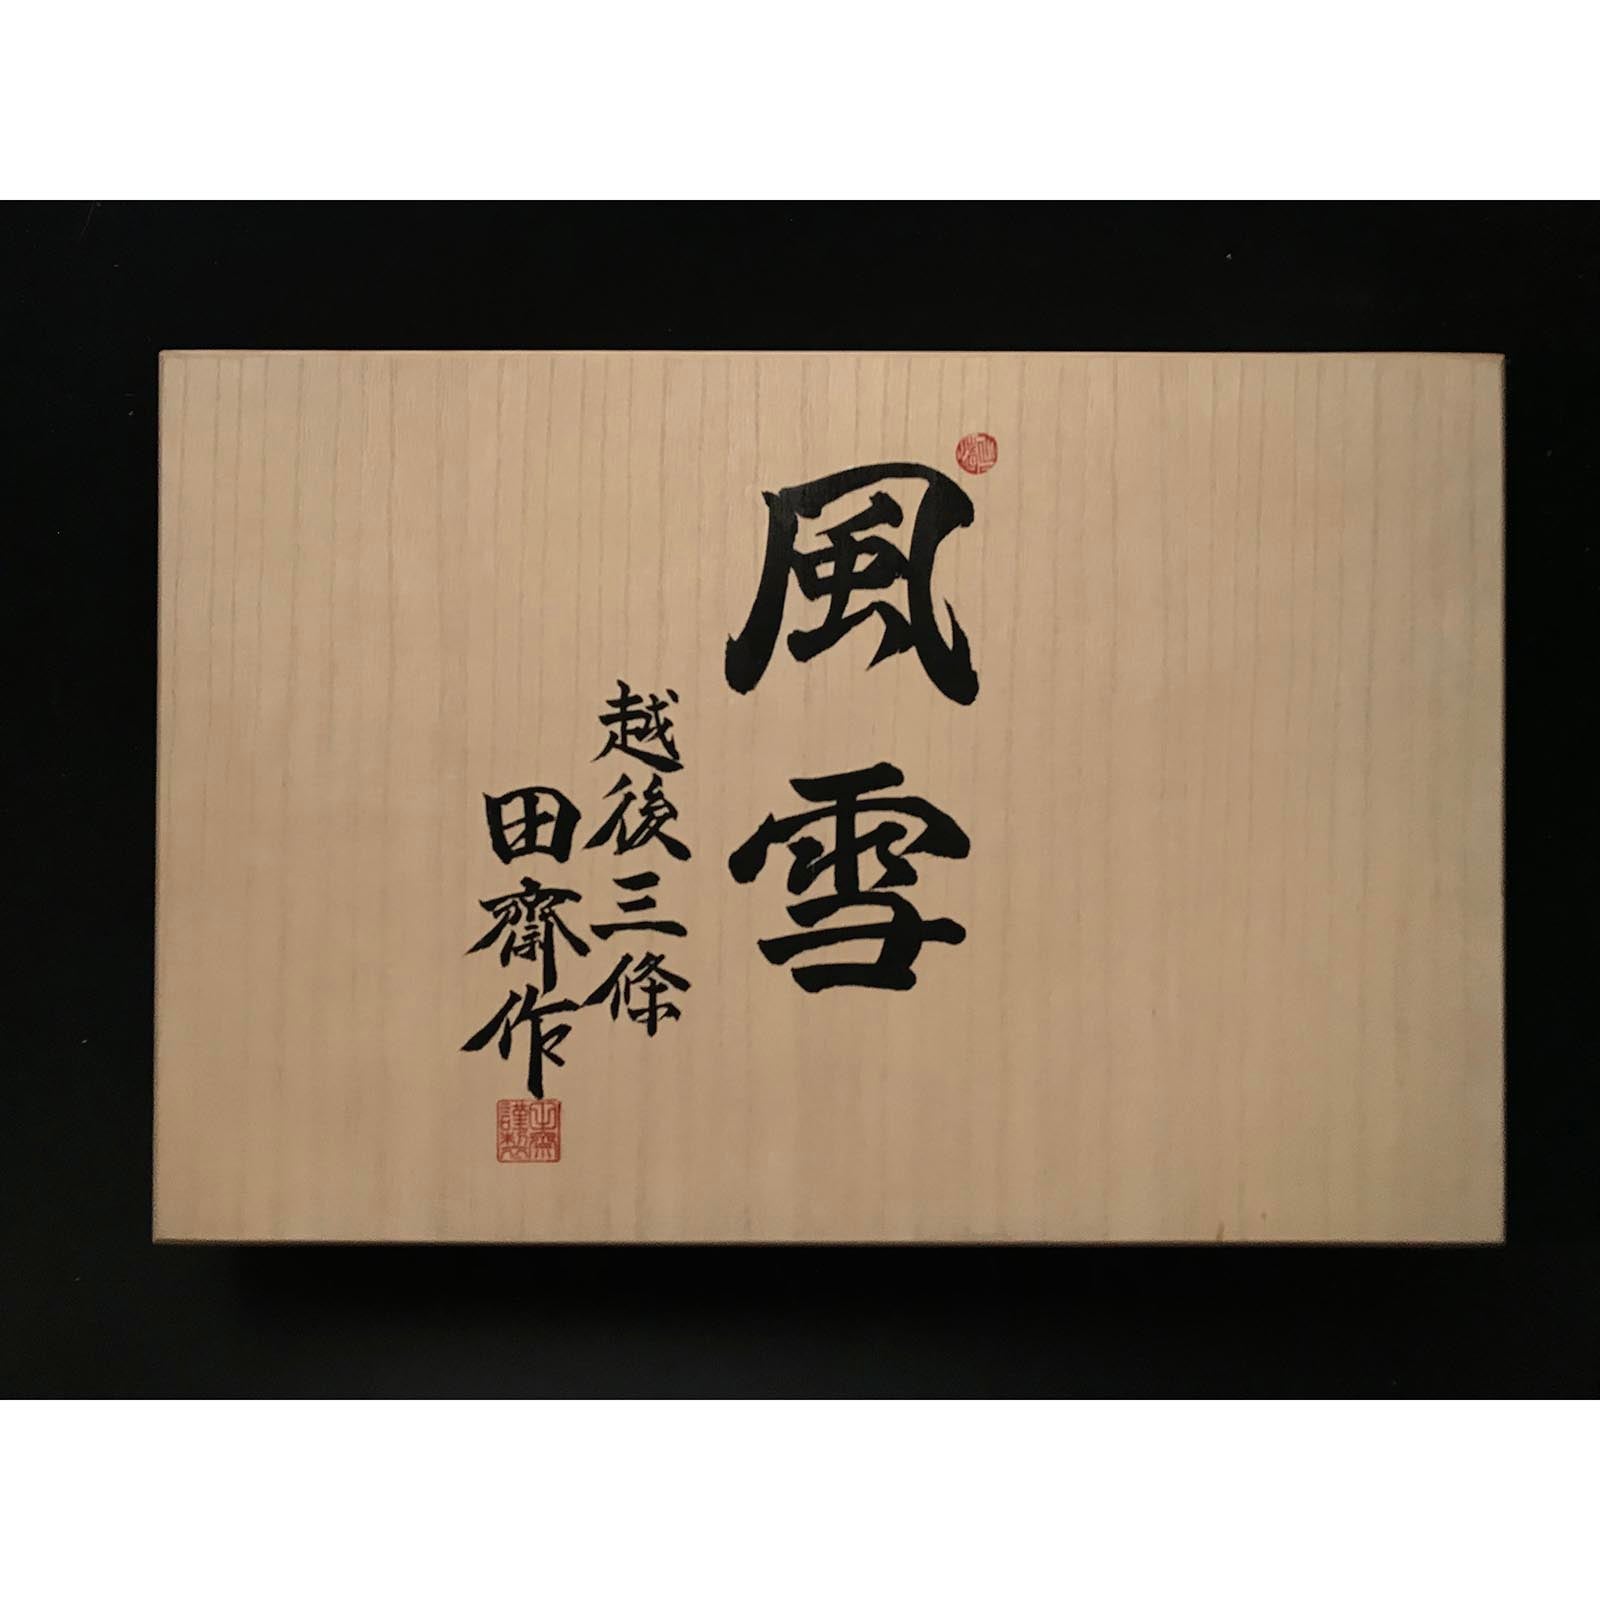 風雪
越後三條
田齋作